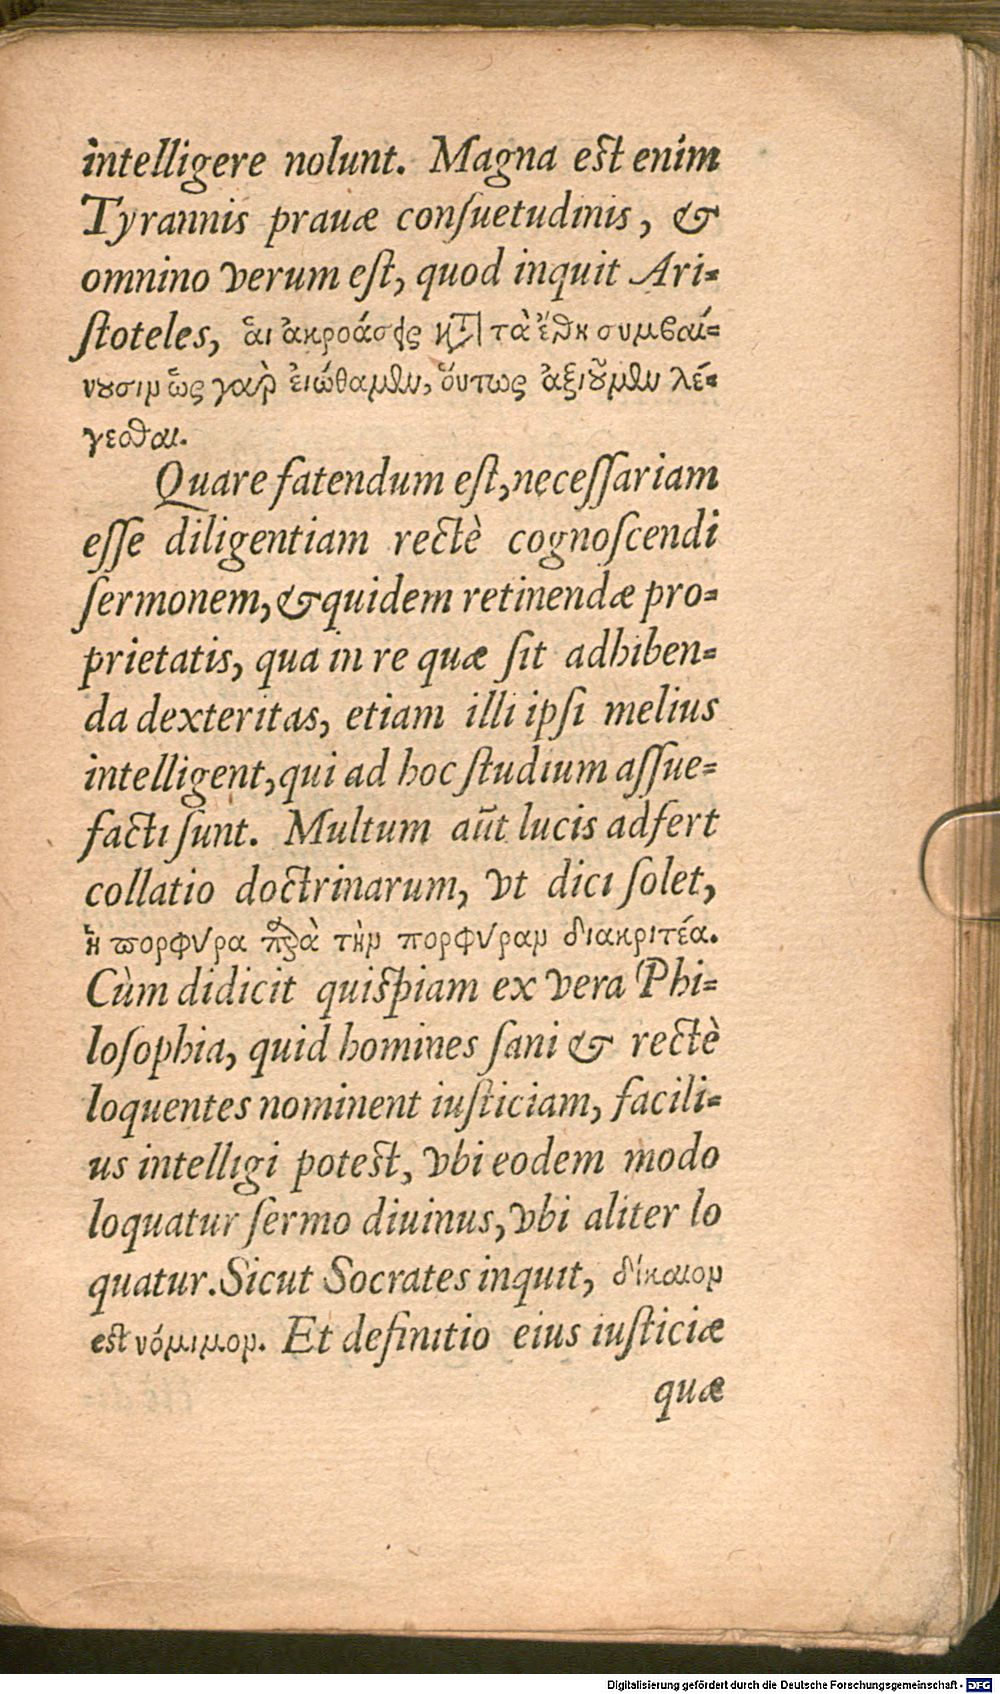 intelligere nolunt. Magna est enim
Tyrannis prauæ conſuetudinis, &
omnino verum eſt, quod inquit Ari-
ſtoteles, ἃι ἀκροάσεις κατὰ τὰ ἔθη συμβαί-
νουσιν ὡς γαρ ἐιώθαμεν, ὅυτως ἀξιοῦμεν λέ-
γεσθαι.
Quare fatendum eſt, neceſſariam
eſſe diligentiam rectè cognoſcendi
ſermonem, & quidem retinendæ pro-
prietatis, qua in re quæ ſit adhiben-
da dexteritas, etiam illi ipſi melius
intelligent, qui ad hoc ſtudium aſſue-
facti ſunt. Multum aūt lucis adfert
collatio doctrinarum, vt dici ſolet,
ἡ πορφύρα παρὰ τὴν πορφύραν διακριτέα.
Cùm didicit quiſpiam ex vera Phi-
loſophia, quid homines ſani & rectè
loquentes nominent iuſticiam, facili-
us intelligi potest, vbi eodem modo
loquatur ſermo diuinus, vbi aliter lo
quatur. Sicut Socrates inquit, δίκαιον
est νόμιμον. Et definitio eius iuſticiæ
quæ
Digitalisierung gefördert durch die Deutsche Forschungsgemeinschaft - DFG